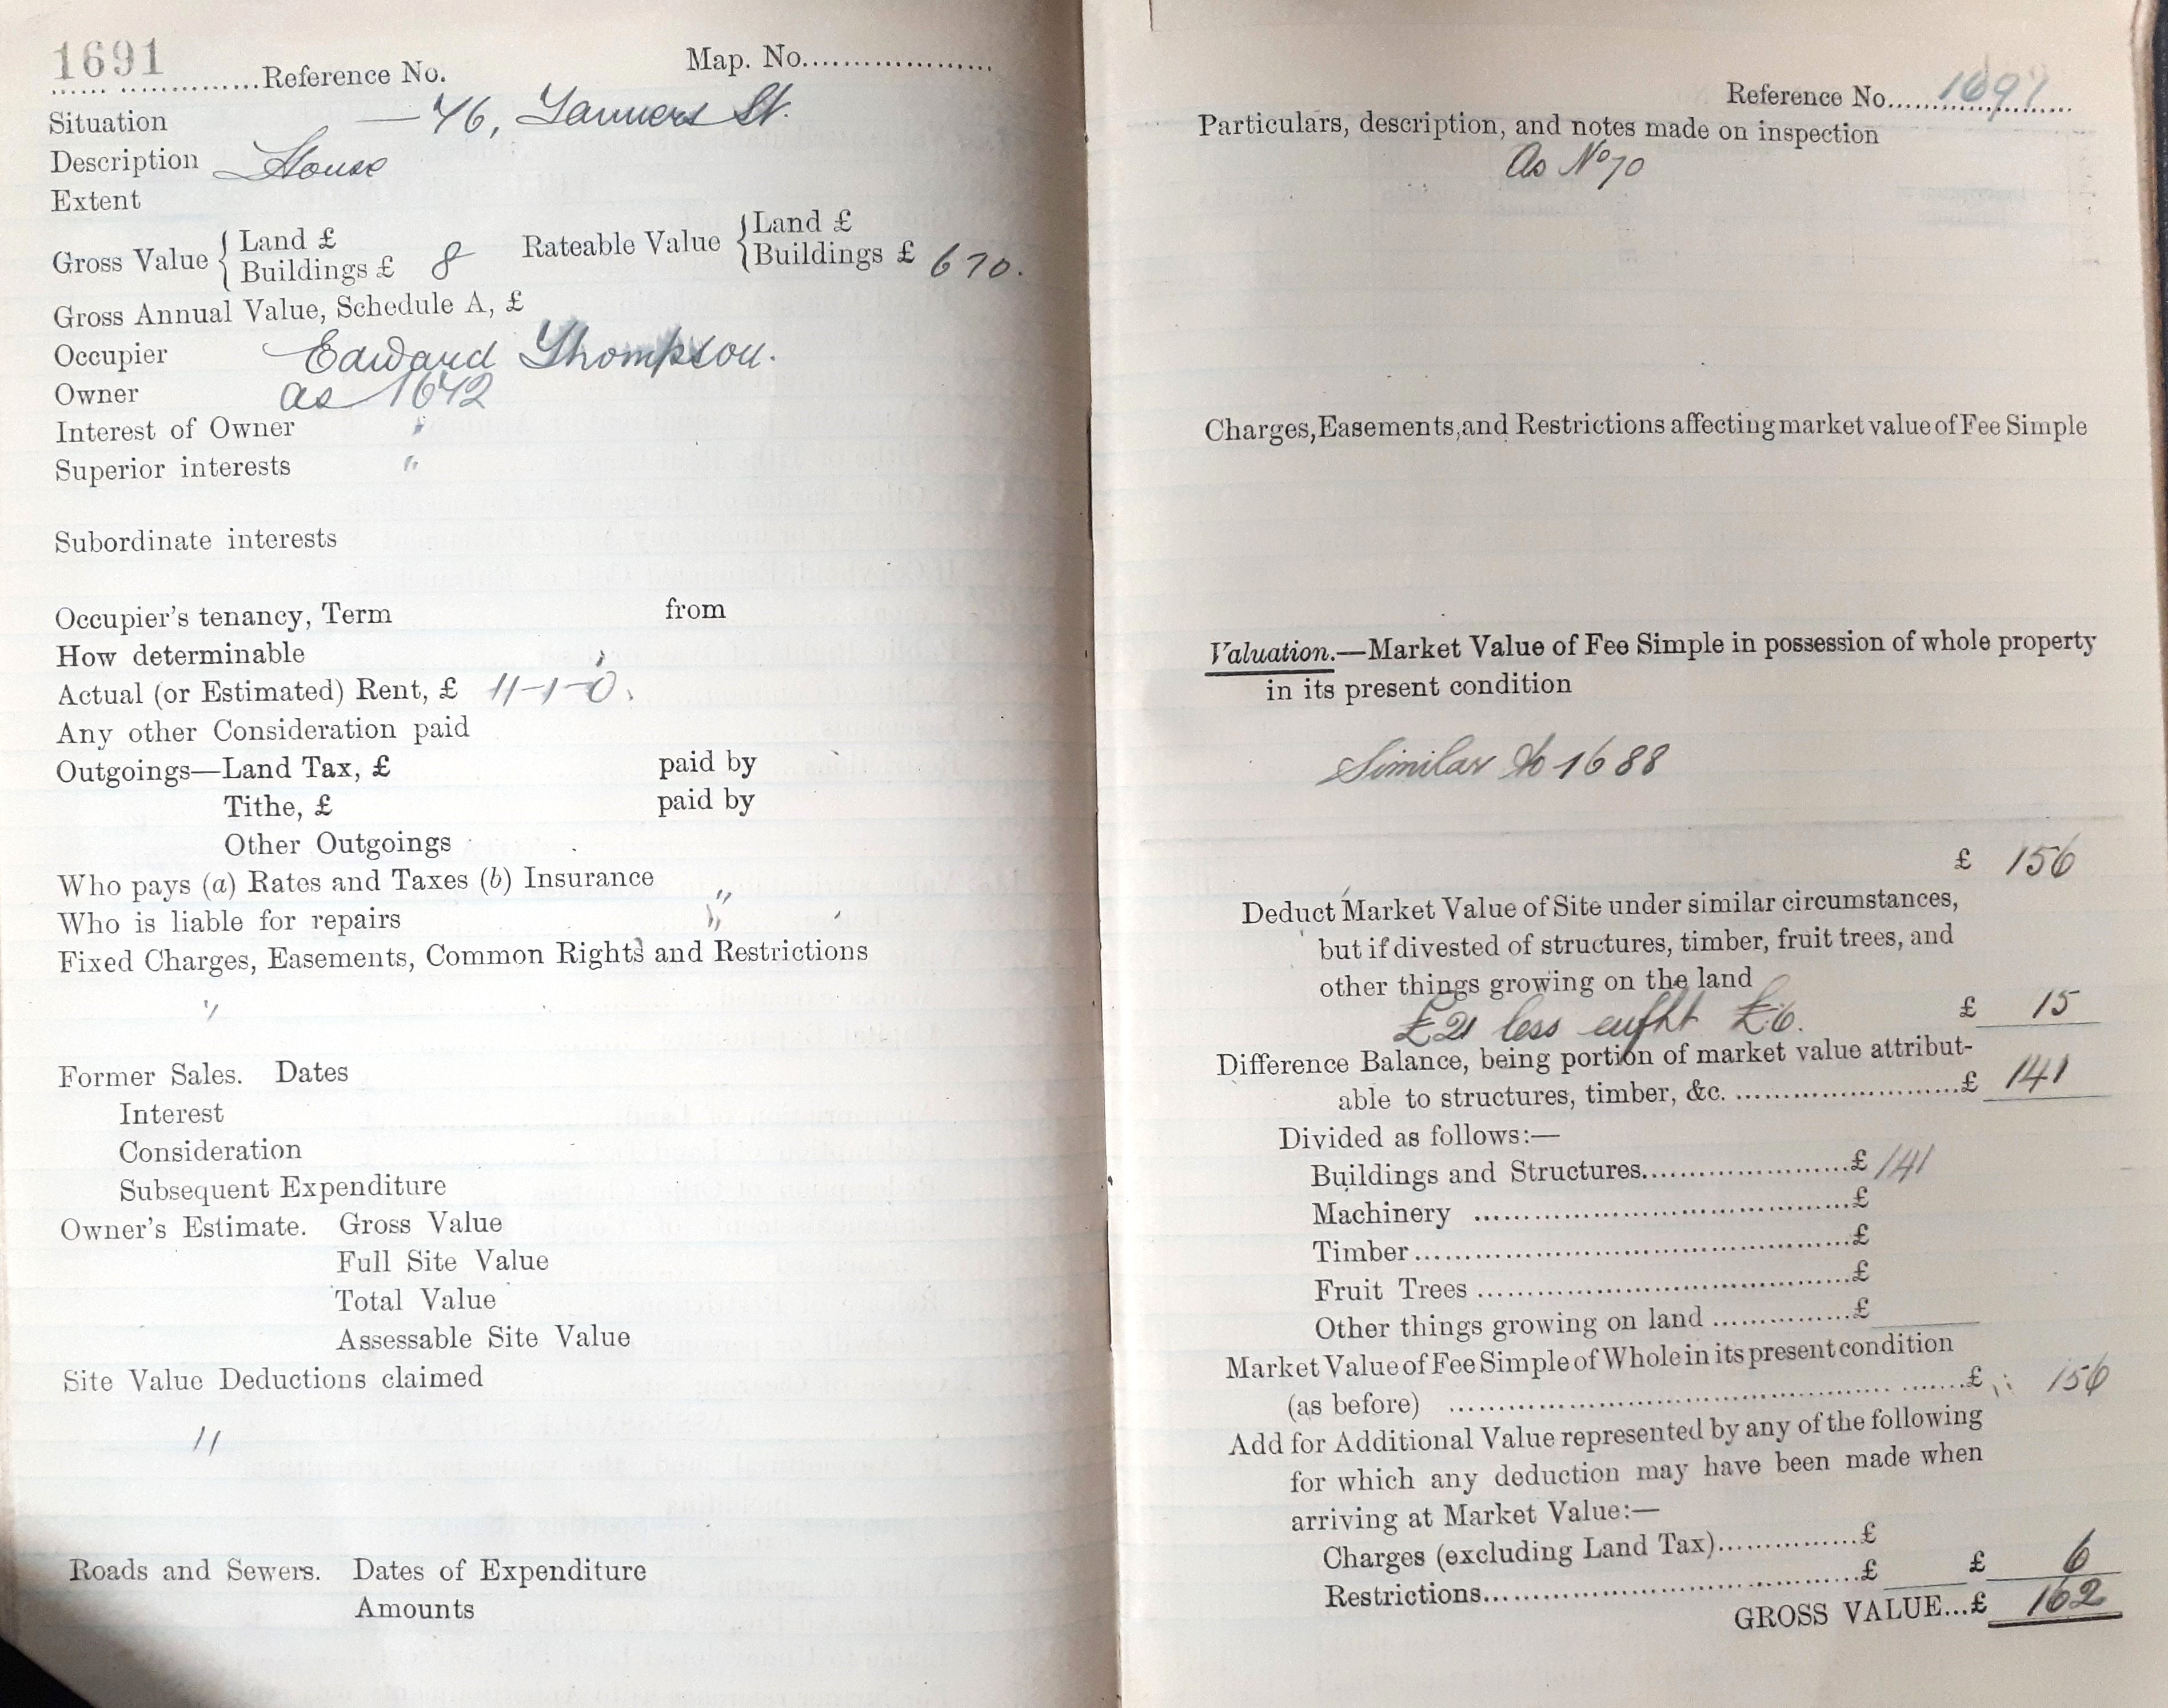 1691
Reference No. Map. No.
Situation — 46, Tanners St.
Description House
Extent
Gross Value { Land £
Buildings £ 8 Rateable Value { Land £
Buildings £ 6 10.
Gross Annual Value, Schedule A, £
Occupier Edward Thompson.
Owner as 1642
Interest of Owner "
Superior interests "
Subordinate interests
Occupier's tenancy, Term from
How determinable
Actual (or Estimated) Rent, £ 11-1-0.
Any other Consideration paid
Outgoings—Land Tax, £ paid by
Tithe, £ paid by
Other Outgoings
Who pays (a) Rates and Taxes (b) Insurance "
Who is liable for repairs "
Fixed Charges, Easements, Common Rights and Restrictions
"
Former Sales. Dates
Interest
Consideration
Subsequent Expenditure
Owner's Estimate. Gross Value
Full Site Value
Total Value
Assessable Site Value
Site Value Deductions claimed
"
Roads and Sewers. Dates of Expenditure
Amounts
Reference No. 1691
Particulars, description, and notes made on inspection
As No 70
Charges, Easements, and Restrictions affecting market value of Fee Simple
Valuation.—Market Value of Fee Simple in possession of whole property
in its present condition
Similar to 1688
£ 156
Deduct Market Value of Site under similar circumstances,
but if divested of structures, timber, fruit trees, and
other things growing on the land
£21 less cufht £6. £ 15
Difference Balance, being portion of market value attribut-
able to structures, timber, &c. £ 141
Divided as follows:—
Buildings and Structures £ 141
Machinery £
Timber £
Fruit Trees £
Other things growing on land £
Market Value of Fee Simple of Whole in its present condition
(as before) £ 156
Add for Additional Value represented by any of the following
for which any deduction may have been made when
arriving at Market Value:—
Charges (excluding Land Tax) £
Restrictions £ £ 6
GROSS VALUE...£ 162